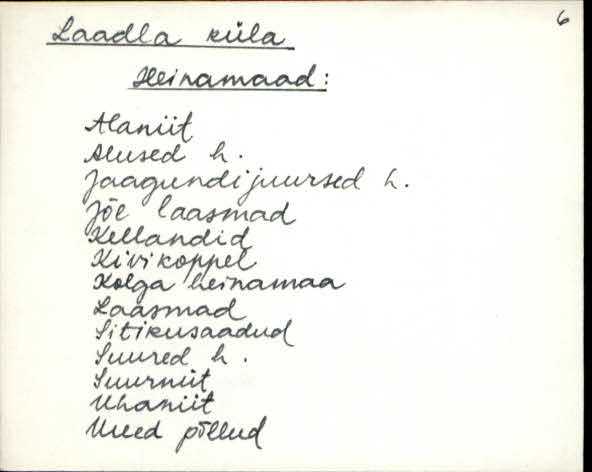 6
Laadla küla
Heinamaad:
Alaniit
Alused h.
Jaagundijuursed h.
Jõe laasmad
Kellandid
Kivikoppel
Kolga heinamaa
Laasmad
Sitikusaadud
Suured h.
Suurniit
Uhaniit
Uued põllud